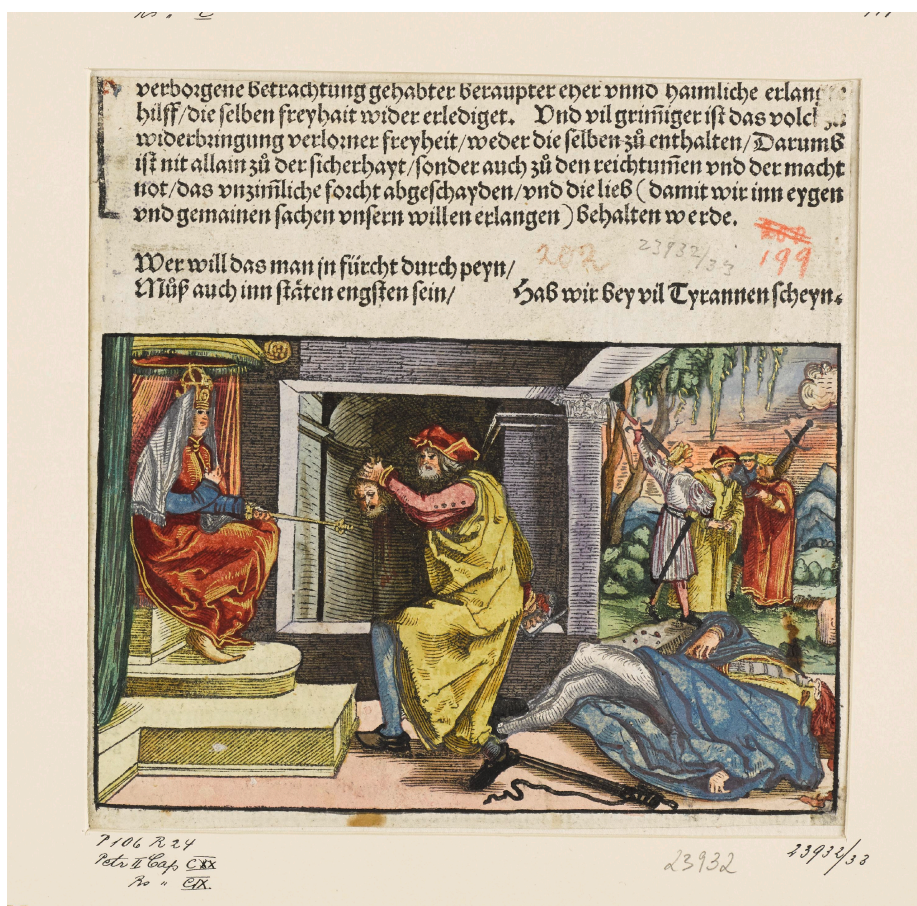 verborgene betrachtung gehabter beraupter eher vnnd haimliche erlangte
hilff/die selben freyhait wider erlediget. Vnd vil grim̃iger ist das volck zů
widerbringung verlorner freyheit/weder die selben zů enthalten/Darumb
ist nit allain zů der sicherhayt/sonder auch zů den reichtum̃en vnd der macht
not/das vnzim̃liche forcht abgeschayden/vnd die lieb (damit wir inn eygen
vnd gemainen sachen vnsern willen erlangen) behalten werde.
202 23932/33
199
Wer will das man jn fürcht durch peyn/
Můß auch inn stäten engsten sein/ Hab wir bey vil Tyrannen scheyn.
P 106 R 24
Petr II Cap CXX
Ro " CIX.
23932
23932/33